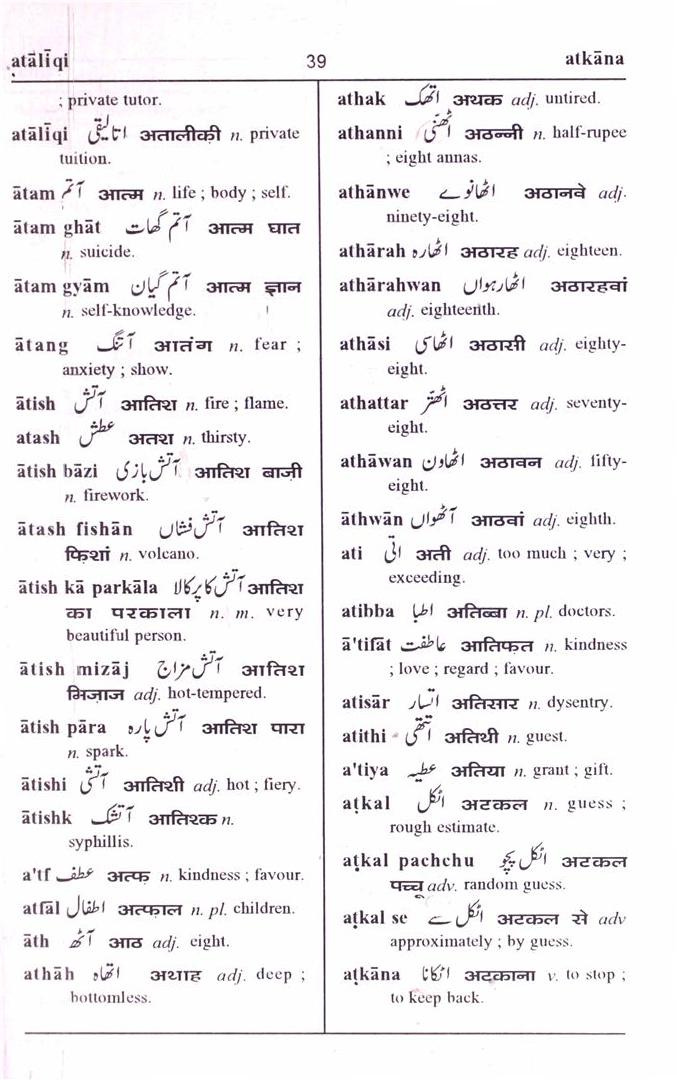 atālīqi 39 atkāna
; private tutor.
atālīqi اتالیقی अतालीकी n. private
tuition.
ātam آتم आत्म n. life ; body ; self.
ātam ghāt آتم گھات आत्म घात
n. suicide.
ātam gyām آتم گیان आत्म ज्ञान
n. self-knowledge.
ātang آتنگ आतंग n. fear ;
anxiety ; show.
ātish آتش आतिश n. fire ; flame.
atash عطش अतश n. thirsty.
ātish bāzi آتش بازی आतिश बाज़ी
n. firework.
ātash fishān آتش فشاں आतिश
फिशां n. volcano.
ātish kā parkāla آتش کا پرکالا आतिश
का परकाला n. m. very
beautiful person.
ātish mizāj آتش مزاج आतिश
मिजाज adj. hot-tempered.
ātish pāra آتش پارہ आतिश पारा
n. spark.
ātishi آتشی आतिशी adj. hot ; fiery.
ātishk آتشک आतिश्क n.
syphillis.
a'tf عطف अत्फ n. kindness ; favour.
atfāl اطفال अत्फाल n. pl. children.
āth آٹھ आठ adj. eight.
athāh اتھاہ अथाह adj. deep ;
bottomless.
athak اتھک अथक adj. untired.
athanni اٹھنی अठन्नी n. half-rupee
; eight annas.
athānwe اٹھانوے अठानवे adj.
ninety-eight.
athārah اٹھارہ अठारह adj. eighteen.
athārahwan اٹھارہواں अठारहवां
adj. eighteenth.
athāsi اٹھاسی अठासी adj. eighty-
eight.
athattar اٹھتر अठत्तर adj. seventy-
eight.
athāwan اٹھاون अठावन adj. fifty-
eight.
āthwān آٹھواں आठवां adj. eighth.
ati اتی अती adj. too much ; very ;
exceeding.
atibba اطبا अतिब्बा n. pl. doctors.
ā'tifāt عاطفت आतिफत n. kindness
; love ; regard ; favour.
atisār اتسار अतिसार n. dysentry.
atithi اتتھی अतिथी n. guest.
a'tiya عطیہ अतिया n. grant ; gift.
aṭkal اٹکل अटकल n. guess ;
rough estimate.
aṭkal pachchu اٹکل پچو अटकल
पच्चू adv. random guess.
aṭkal se اٹکل سے अटकल से adv
approximately ; by guess.
aṭkāna اٹکانا अटकाना v. to stop ;
to keep back.